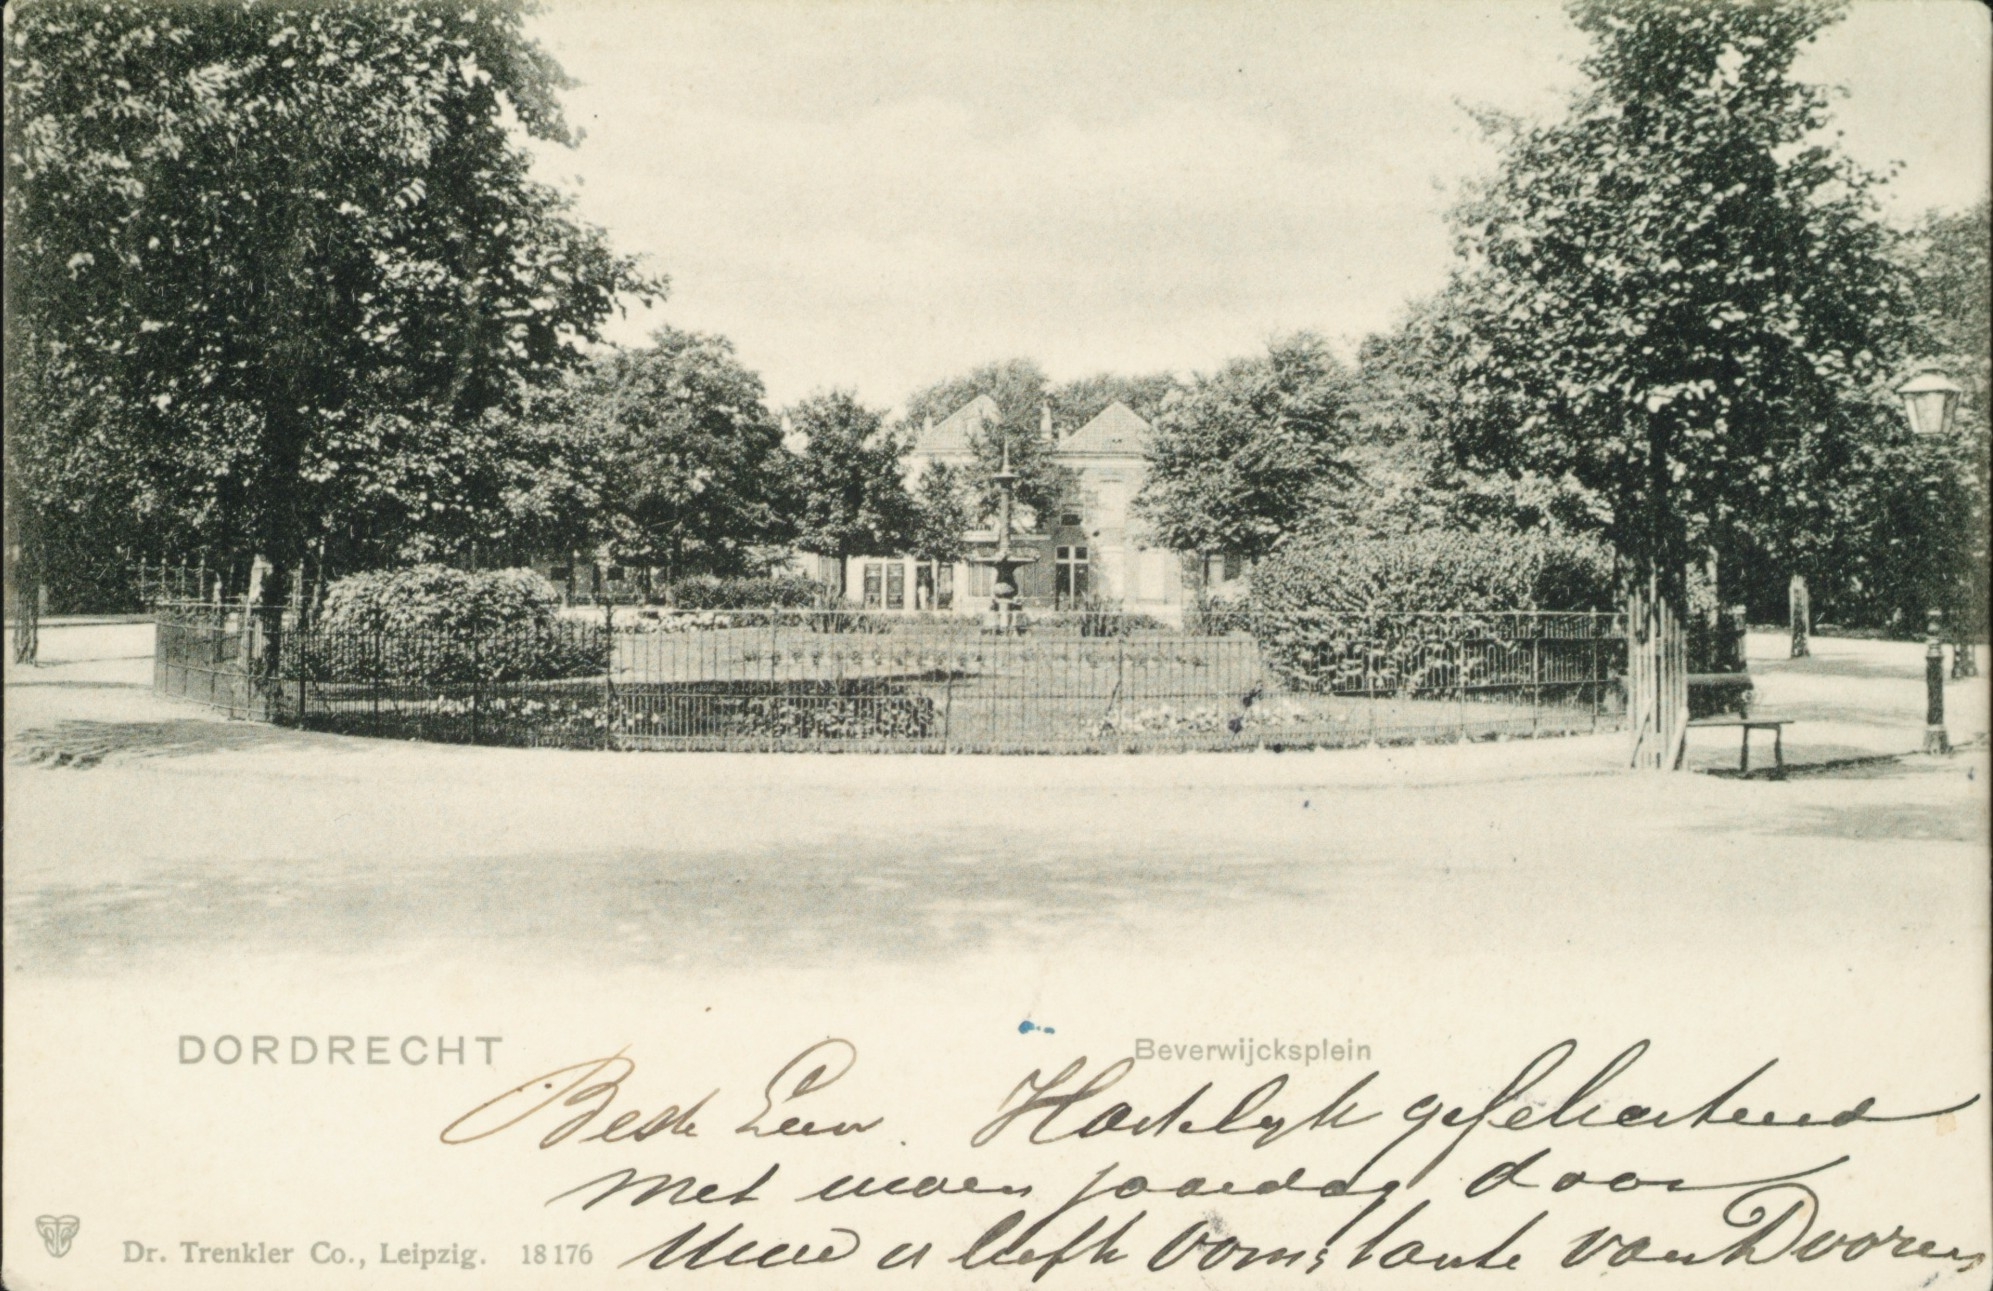 DORDRECHT
Beverwijcksplein
Beste Leen. Hartelijk gefeliciteerd
met uwen jaardag door
uwe u liefh
Dr. Trenkler Co., Leipzig. 18176